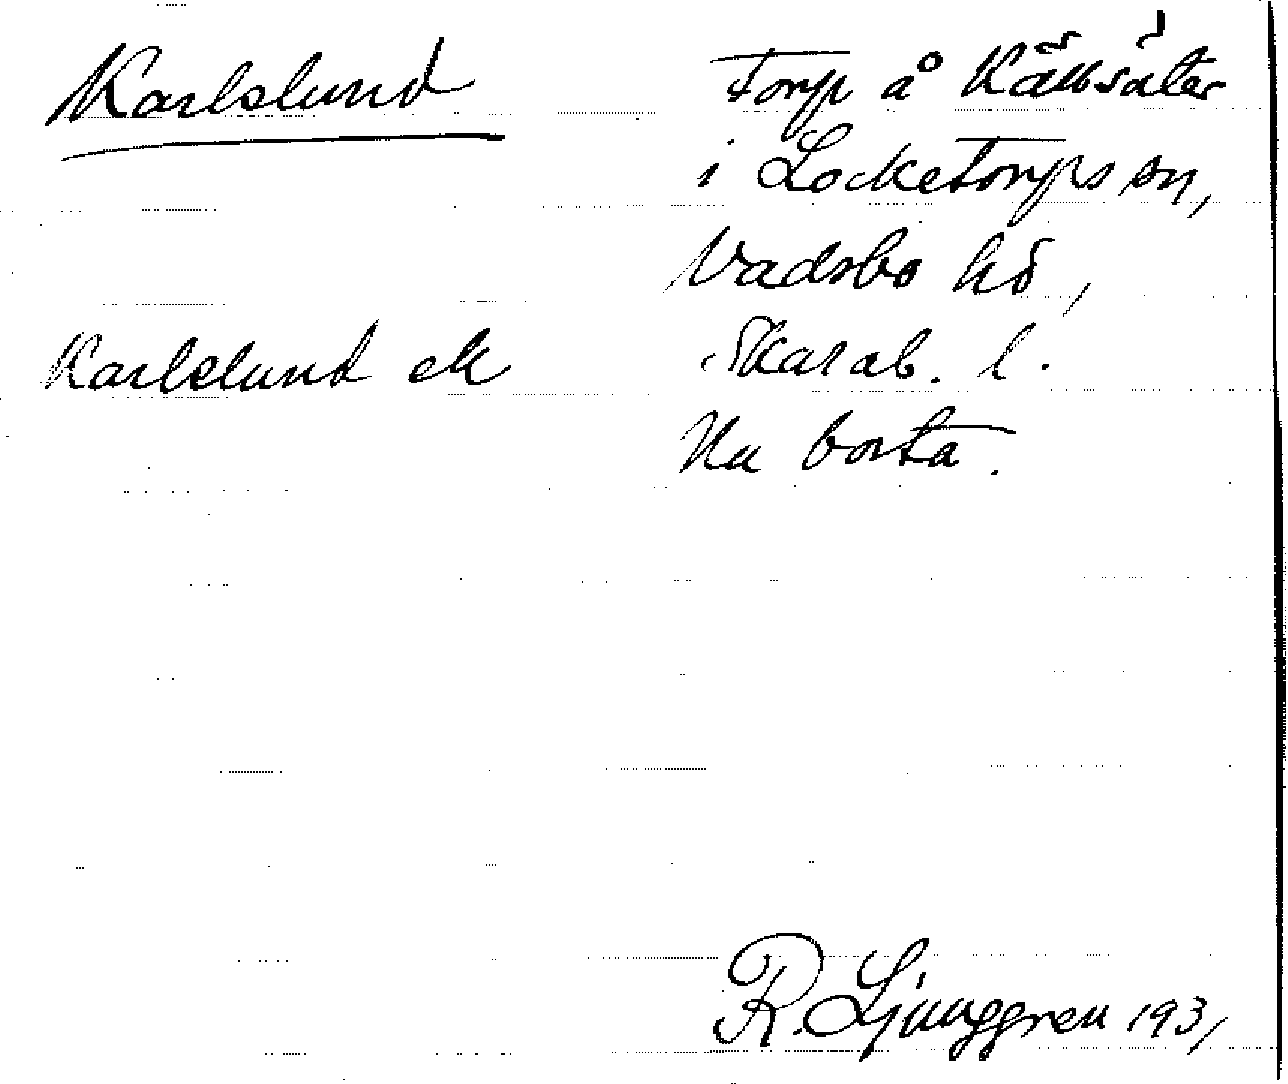 Karlslund
Torp å Källsäter
i Locketorps sn,
Vadsbo hd,
Karlslund ek
Skarab. l.
Nu borta.
R. Ljunggren 1931